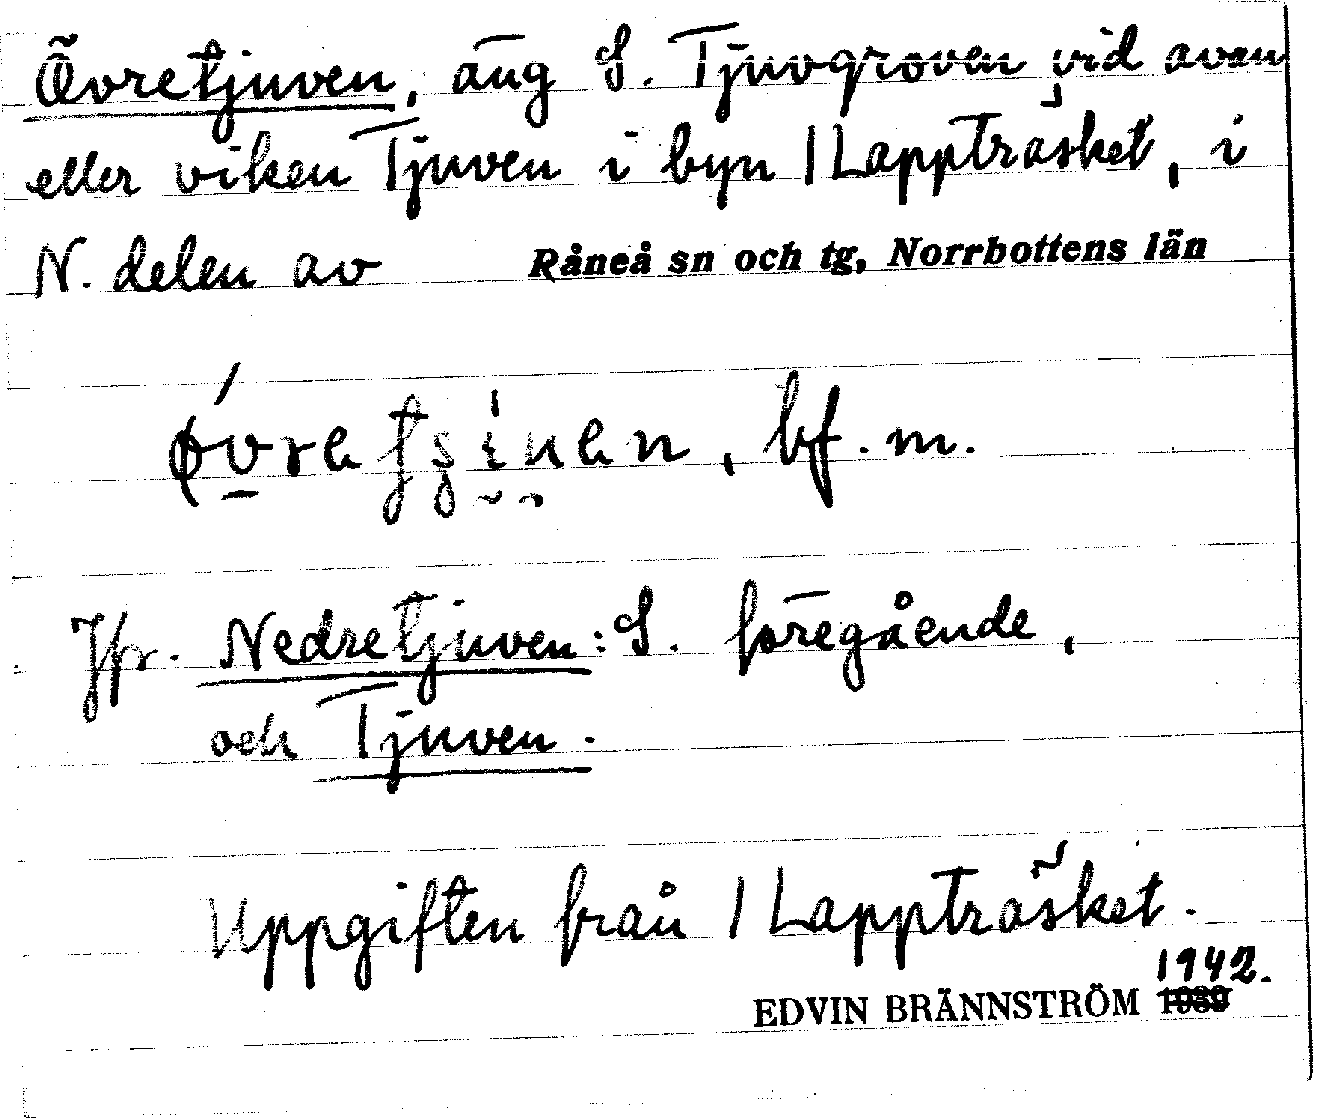 Övretjuven, äng S. Tjuvgroven vid avan
eller viken Tjuven i byn 1 Lappträsket, i
N. delen av Råneå sn och tg, Norrbottens län
bf. m.
Jfr. Nedretjuven: S. föregående,
och Tjuven.
Uppgiften från 1 Lappträsket.
1942.
EDVIN BRÄNNSTRÖM 1939